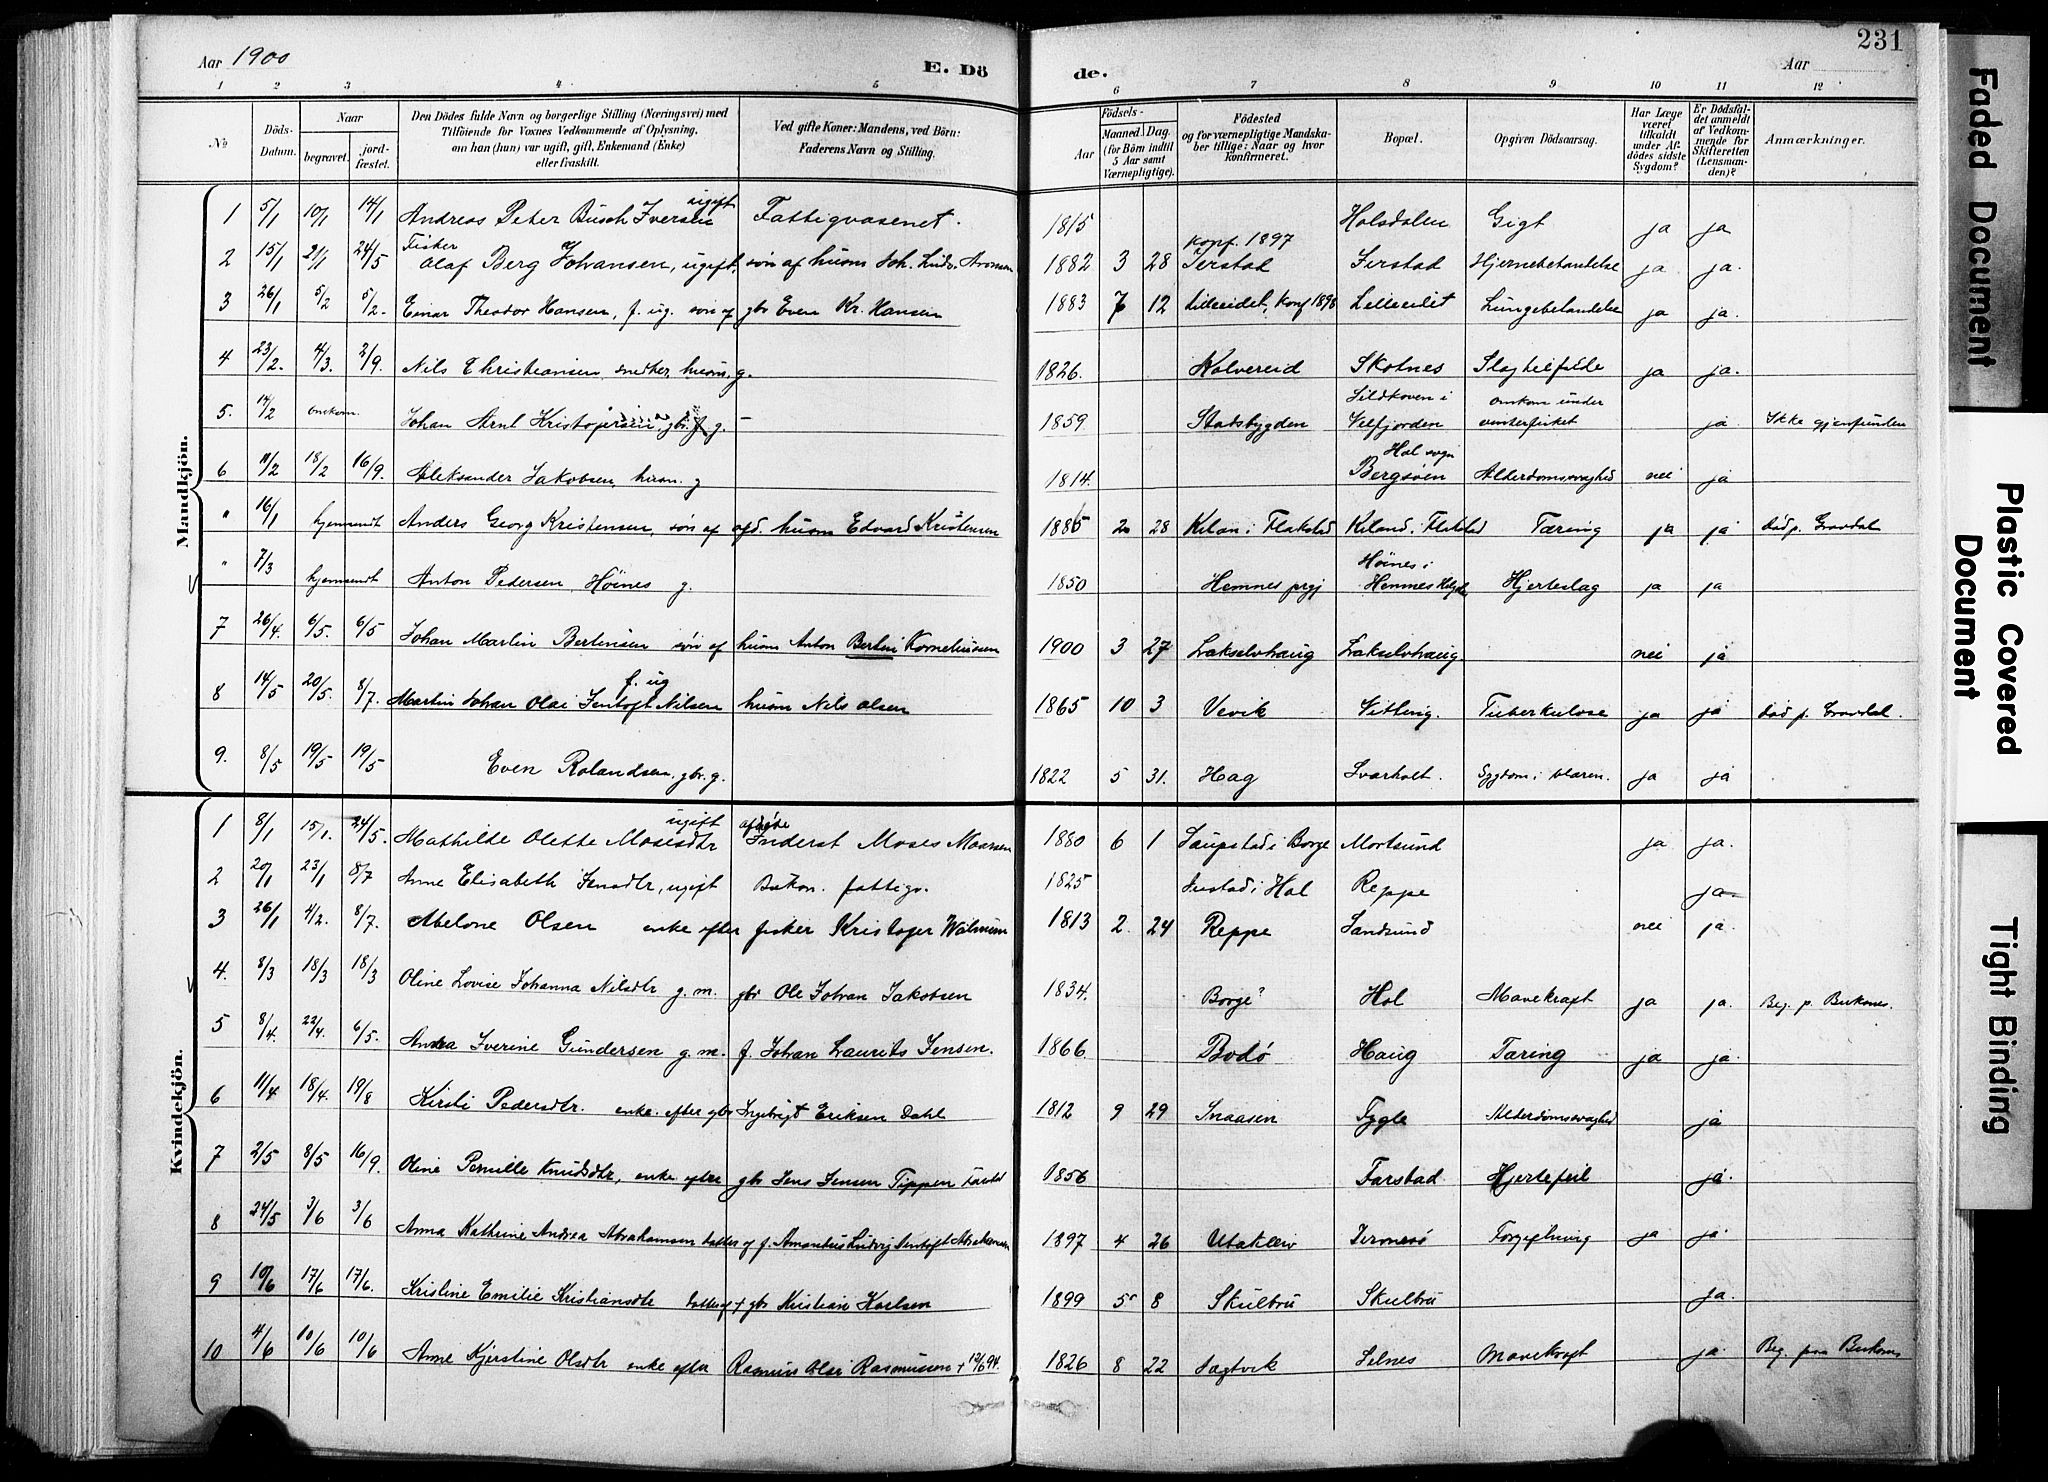 231
Aar 1900
E. Dö
de.
Aar
1 2 3 4 5 6 7 8 9 10 11 12
№
Döds-Datum.
Naar
begravet.
jord-fæstet.
Den Dödes fulde Navn og borgerlige Stilling (Næringsvei) med Tilföiende for Voxnes Vedkommende af Oplysning, om han (hun) var ugift, gift, Enkemand (Enke) eller fraskilt.
Ved gifte Koner: Mandens, ved Börn: Faderens Navn og Stilling.
Födsels-
Aar
Maaned Dag (for Börn indtil 5 Aar samt Værnepligtige).
Födested og for værnepligtige Mandskaber tillige: Naar og hvor Konfirmeret.
Bopæl.
Opgiven Dödsaarsag.
Har Læge været tilkaldt under Afdödes sidste Sygdom?
Er Dödsfaldet anmeldt af Vedkommende for Skifteretten (Lensmanden)?
Anmærkninger.
Mandkjön.
1 5/1 10/1 14/1 Andreas Peter Busch Iversen ugift Fattigvæsenet. 1815 Holsdalen Gigt ja ja
2 15/1 21/1 24/5 Fisker Olaf Berg Johansen, ugift, søn af husm Joh. Ludv. 1882 3 28 konf. 1897 Jerstad Jerstad Hjernebetændelse ja ja.
3 26/1 5/2 5/2 Einar Theodor Hansen, f. ug. søn af gbr Even Kr. Hansen 1883 7 12 Lilleeidet, konf 1898 Lilleeidet Lungebetændelse ja ja.
4 23/2. 4/3. 2/9. Nils Christiansen, snedker, husm. g. 1826. Kolvereid Skotnes Slagtilfælde ja ja.
5. 14/2 omkom Johan Arnt gbr. g. 1859 Stadsbygden Sildkoven i Velfjorden omkom under vinterfisket ja Ikke gjenfunden
6 11/2 18/2 16/9. Aleksander Jakobsen, husm. g 1814. Hol sogn Bergsøen Alderdomssvaghed nei ja
" 16/1 hjemsendt Anders Georg Kristensen, søn af afd. husm Edvard Kristensen 1885 2 28 i Flakstad i Flakstad Tæring ja ja død p. Gravdal
" 7/3 hjemsendt Anton Pedersen, Høines g. 1850 Hemnes prgj Høines i Hemnes Helgeland Hjerteslag ja ja
7 26/4. 6/5. 6/5 Johan Martin Bertinsen søn af husm Anton Bertin Korneliussen 1900 3 27 Lakselvhaug Lakselvhaug. nei ja
8 14/5 20/5. 8/7. Martin Johan Olai Jentoft Nilsen f. ug husm Nils Olsen 1865 10 3 Vevik Vitting. Tuberkulose ja ja død p. Gravdal.
9. 8/5 19/5 19/5 Even Rolandsen, gbr. g. 1822 5 31. Hag Svarholt. Sygdom i blæren. ja ja
Kvindekjön.
1 8/1 15/1. 24/5. Mathilde Olette Mosesdtr ugift afdøde Inderst Moses 1880 6 1 Saupstad i Borge Mortsund ja ja.
2 20/1 23/1 8/7 Anne Elisabeth Jensdtr, ugift fattigv. 1825 i Hol Reppe ja
3 26/1 4/2. 8/7. Abelone Olsen enke efter fisker Kristofer 1813 2. 24 Reppe Sandsund nei ja.
4. 8/3 18/3 18/3 Oline Lovise Johanna Nilsdtr g. m. gbr Ole Johan Jakobsen 1834. Borge? Hol Mavekræft ja ja. Beg. p. Buksnes.
5 8/4. 22/4. 6/5. Andrea Iverine Gundersen g. m. f. Johan Laurits Jensen. 1866 Bodø Haug Tæring ja ja.
6 11/4 18/4. 19/8 Kirsti Pedersdtr. enke efter gbr Ingebrigt Eriksen Dahl 1812 9 29 Snaasen Fygle Alderdomssvaghed ja
7 2/5 8/5 16/9. Oline Pernille Knudsdtr, enke efter gbr Jens Jensen Tippen 1856 Farstad Hjertefeil ja.
8 24/5 3/6 3/6 Anna Kathrine Andrea Abrahamsen datter af f. Amandus Ludvig Jentoft Abrahamsen 1897 4 26 Utakleiv Forgiftning ja ja.
9 10/6 17/6 17/6. Kristine Emilie Kristiansdtr datter af gbr Kristian Karlsen 1899 5 8 Skulbru Skulbru ja.
10 4/6 10/6 10/6 Anne Kjerstine Olsdtr enke efter Rasmus Olai Rasmussen + 12/6 94. 1826 8 22 Sagtvik Selnes Mavekræft ja. Beg. paa Buksnes
Faded Document
Plastic Covered Document
Tight Binding